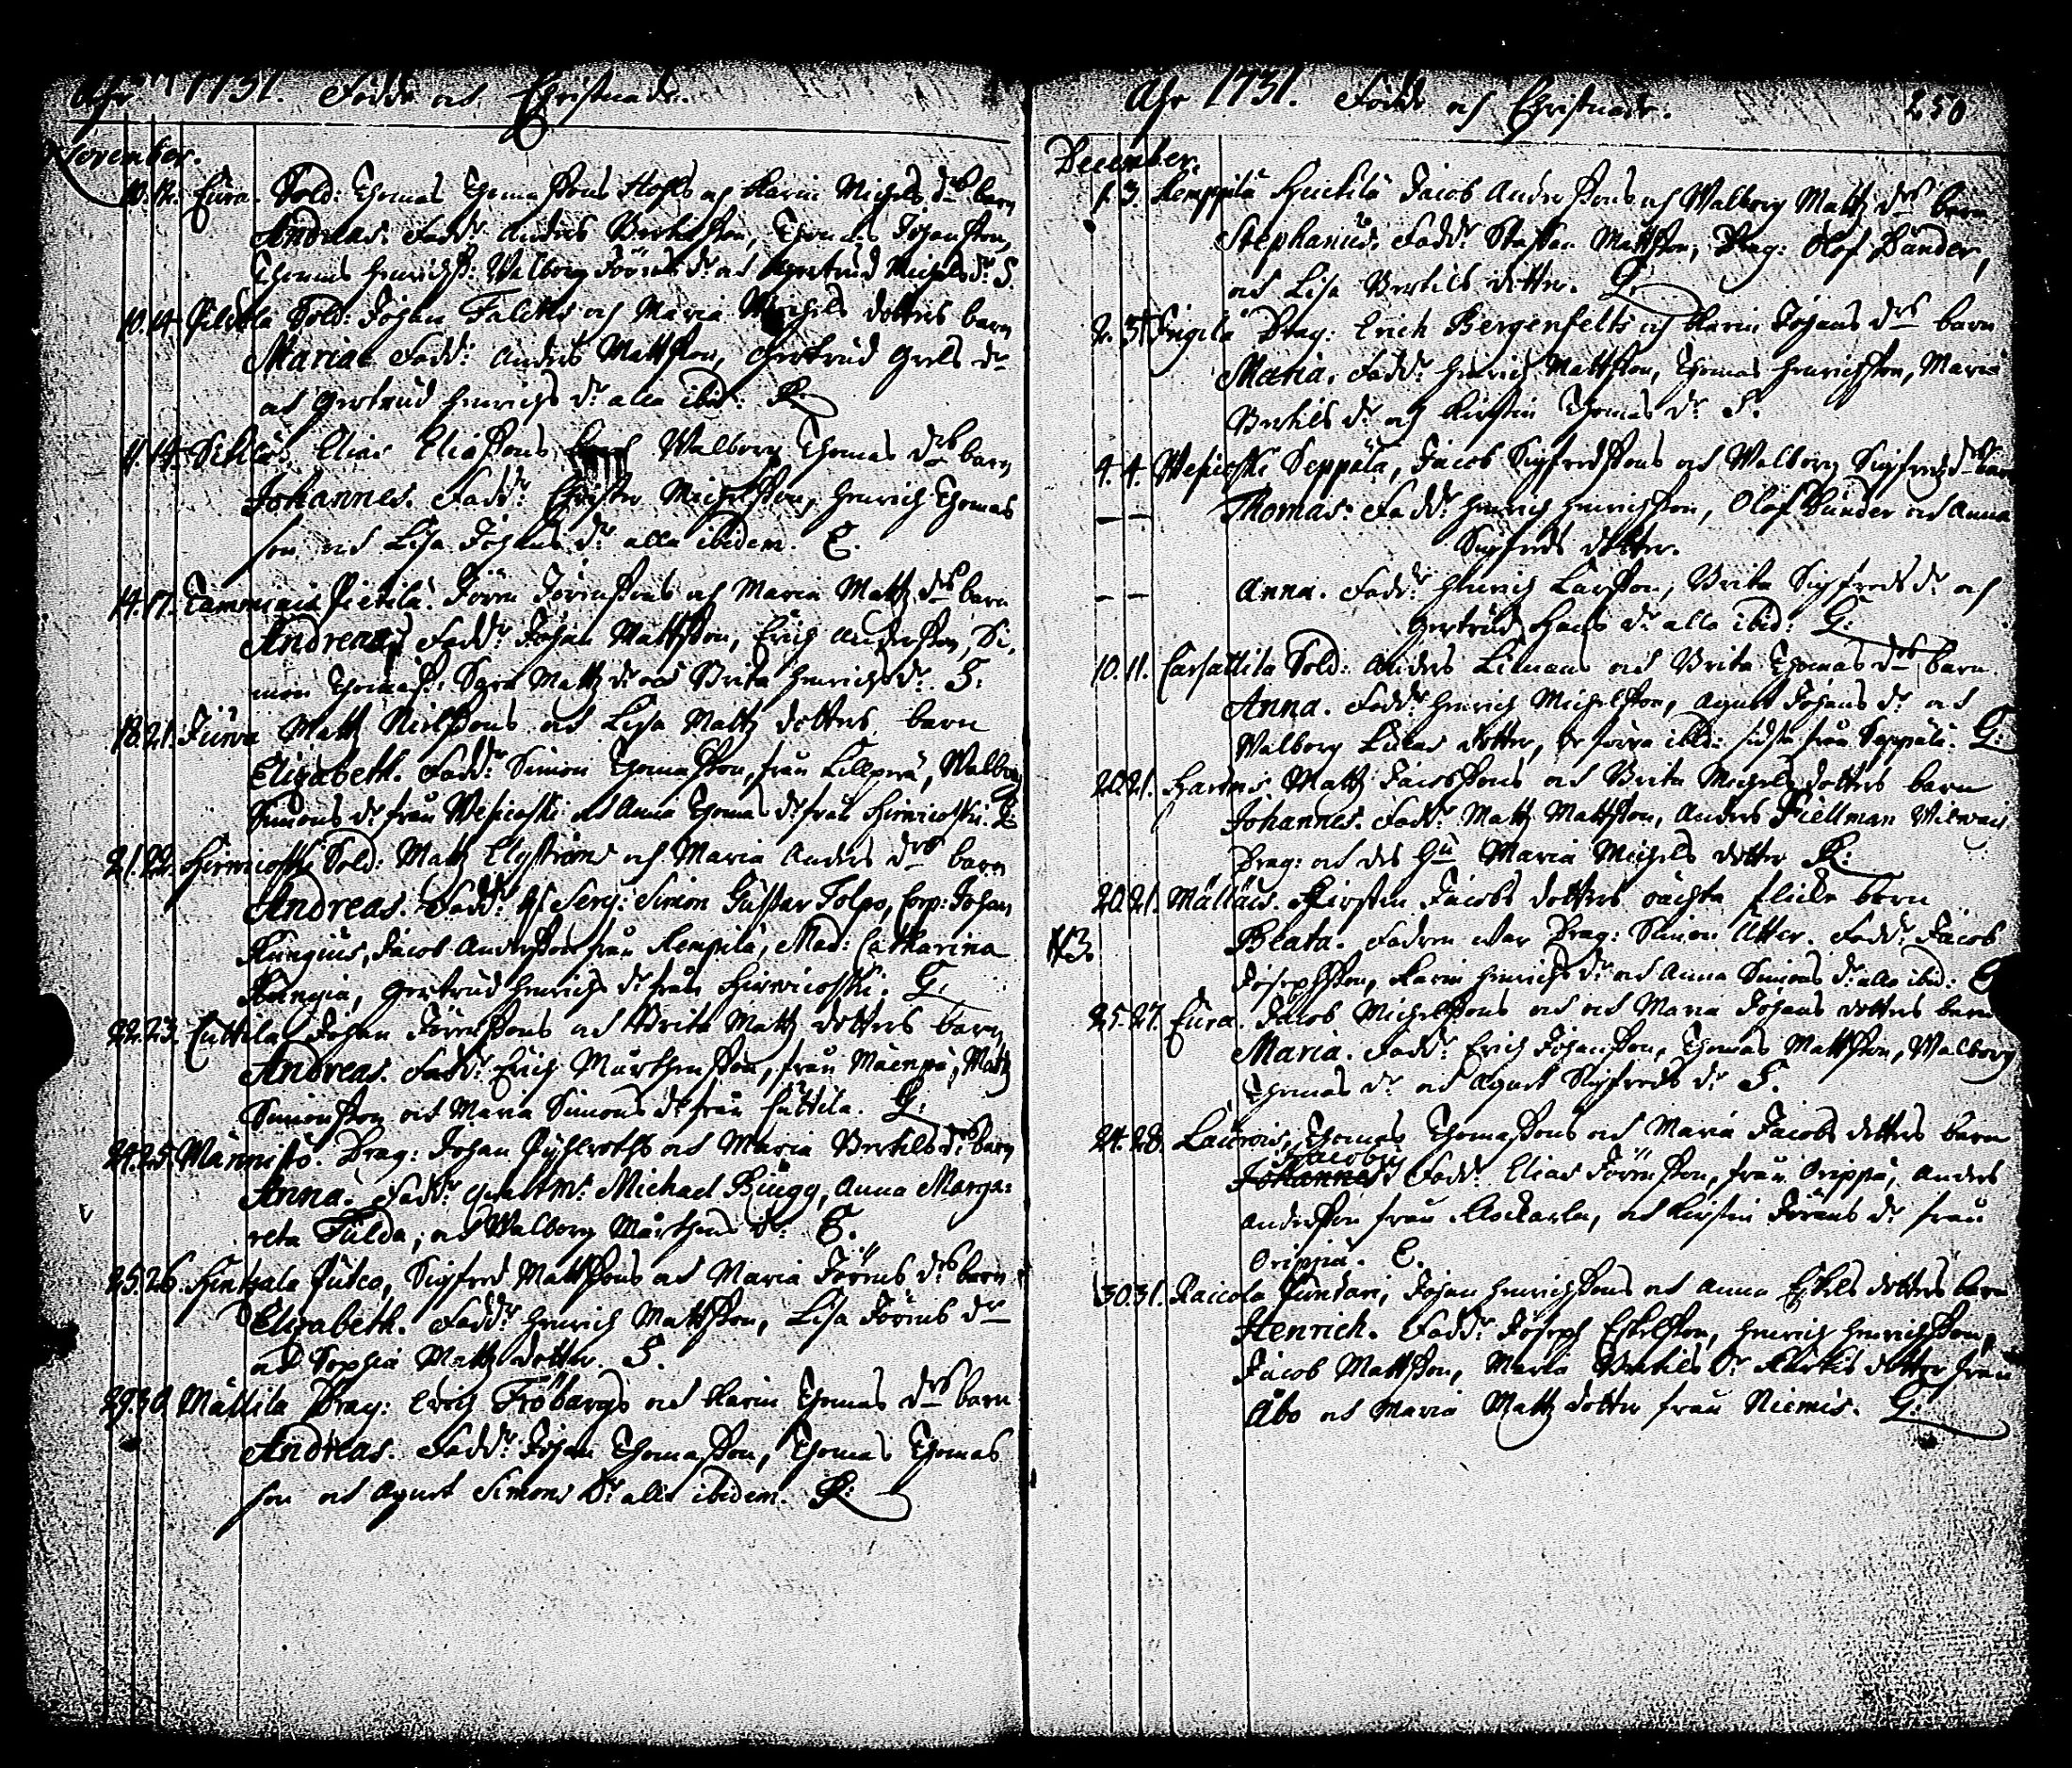 Åhr 1731. Födde och Christnade.
November.
10. 12. Eura. Sold: Thomas Thomæssons och Karin Michels drs barn
Andreas. Fadd: Anders Bertilsson, Thomas Johansson,
Thomas Henrichss: Walborg Jörens dr och Gertrud Michels dr S.
10. 14. Sold: Johan Falcks och Maria Michels dotters barn
Maria. Fadd: Anders Mattsson, Gertrud Grels dr
och Gertrud Henrichs dr alla ibid: R:
11. 14. Elias Eliæssons Walborg Thomas drs barn
Johannes. Faddr Christer Michelsson, Henrich Thomas
son och Lisa Johans dr alla ibidem. E.
14. 17. Tammiais Pietilä. Jören Jörenssons och Maria Matts drs barn
Andreas. Faddr Johan Mattsson, Erich Andersson, Si-
mon Thomass: Sara Matts dr och Brita Henrichs dr. S:
18. 21. Juva Matts Nielssons och Lisa Matts dotters barn
Elisabeth. Faddr Simon Thomasson, från Lillperä, Walborg
Simons dr från Wesicoski och Anna Thomas dr från Hirwicoski. R:
21. 22. Hirwicoski Sold: Matts Elgströms och Maria Anders drs barn
Andreas. Faddr Serg: Simon Gustav Polpo, Corp: Johan
Kungius, Jacob Andersson från Kempilä, Mad: Catharina
Kungia, Gertrud Henrichs dr från Hirwicoski. G:
22. 23. Cuttila Johan Jörenssons och Brita Matts dotters barn
Andreas. Faddr Erich Mårthensson, från Mäenpä, Matts
Simonsson och Maria Simons dr från Cuttila. G:
24. 25. Männistö. Drag: Johan och Maria Bertils drs barn
Anna. Faddr Michael Ringg, Anna Marga-
reta Fulda, och Walborg Mårthens dr. E.
25. 26. Hientzala Putco, Sigfred Mattssons och Maria Jörens drs barn
Elisabeth. Faddr Henrich Mattsson, Lisa Jörens dr
och Sophia Matts dotter. S.
29. 30. Mattila Drag: Erich Fröbergs och Karin Thomas drs barn
Andreas. Faddr Johan Thomasson, Thomas Thomas
son och Agnet Simons dr alla ibidem. R:
Åhr 1731. Födde och Christnade. 250
December.
1. 3. Kemppilä Huckila Jacob Anderssons och Walborg Matts drs barn
Stephanus. Faddr Staffan Mattsson, Drag: Olof Bunder,
och Lisa Bertils dotter. G:
2. 5. Drag: Erich Bergenfelts och Karin Johans drs barn
Maria. Faddr Henrich Mattsson, Thomas Henrichsson, Maria
Bertils dr och Kirstin Thomas dr S.
4. 4. Wesicoski Seppälä, Jacob Sigfredssons och Walborg Sigfreds drs barn
— — Thomas. Faddr Henrich Henrichsson, Olof Bunder och Anna
Sigfreds dotter.
— — Anna. Faddr Henrich Larsson, Brita Sigfreds dr och
Gertrud Hans dr alla ibid: G:
10. 11. Carsattila Sold: Anders Limans och Brita Thomas drs barn
Anna. Faddr Henrich Michelsson, Agnet Johans dr och
Walborg Lucas dotter, de förra ibid: sidsta från Seppälä. G:
20. 21. Harvois Matts Jacobssons och Brita Michels dotters barn
Johannes. Faddr Matts Mattsson, Anders Fiellman
Drag: och des Hu Maria Michels dotter R:
20. 21. Mällais. Kirstin Jacobs dotters oächta flicke barn
N3. Beata. Fadren war Drag: Simon Utter. Faddr Jacob
Josephsson, Karin Henrichs dr och Anna Simons dr alla ibid: E
25. 27. Eura. Jacob Michelssons och och Maria Johans dotters barn
Maria. Faddr Erich Johansson, Thomas Mattsson, Walborg
Thomas dr och Agnet Sigfreds dr S.
24. 28. Laurois, Thomas Thomassons och Maria Jacobs dotters barn
Jacobus
Johannes. Faddr Elias Jörensson, från Orippä, Anders
Andersson från Aockarla, och Kirstin Jörens dr från
Orippä. E.
30. 31. Raicola Puntari, Johan Henrichssons och Anna Eskels dotters barn
Henrich. Faddr Joseph Eskelsson, Henrich Henrichsson,
Jacob Mattsson, Maria Bertils dr dotter från
Åbo och Maria Matts dotter från Niemis. G: